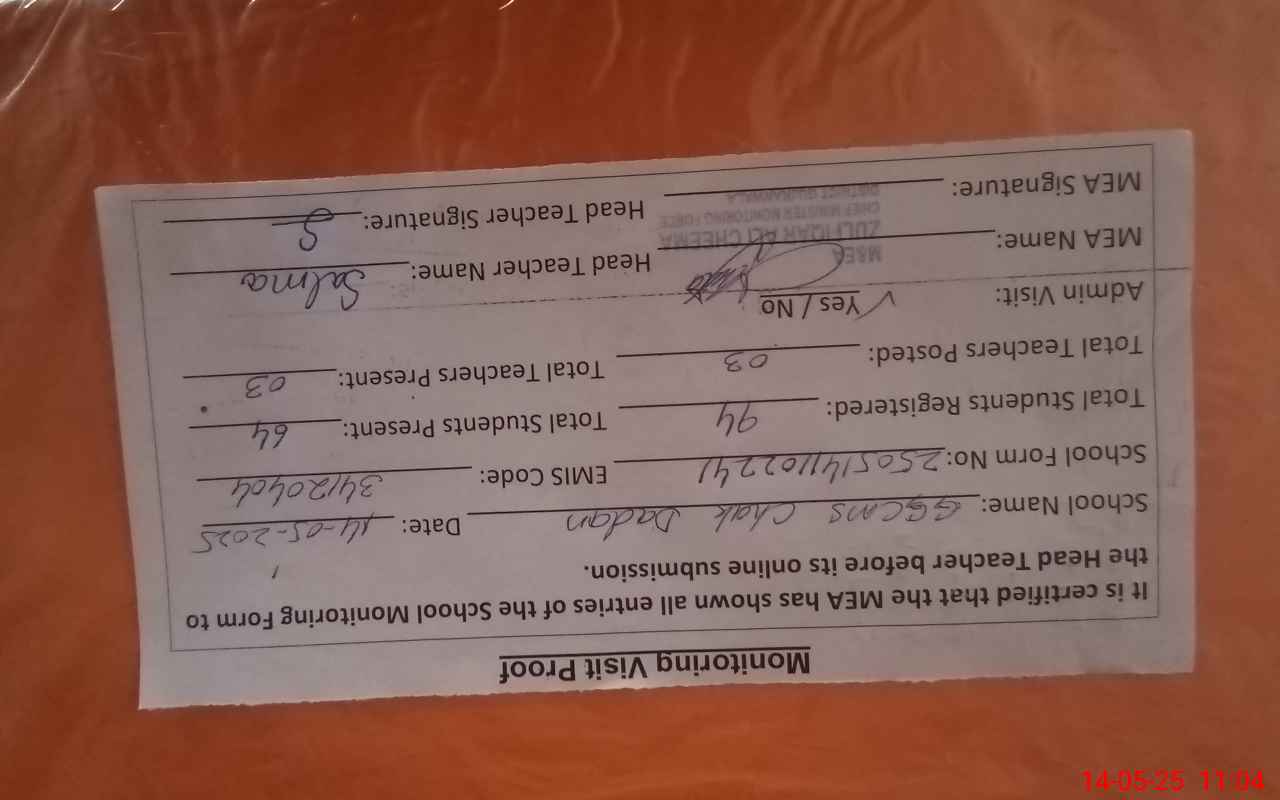 Monitoring Visit Proof
It is certified that the MEA has shown all entries of the School Monitoring Form to
the Head Teacher before its online submission.
School Name: GGCMS Chak Dadan Date: 14-05-2025
School Form No: 2505141102241 EMIS Code: 34120404
Total Students Registered: 94 Total Students Present: 64
Total Teachers Posted: 03 Total Teachers Present: 03
Admin Visit: Yes / No
MEA Name: Head Teacher Name: Salma
M&EA
ZULFIQAR ALI CHEEMA
CHIEF MINISTER MONITORING FORCE
DISTRICT GUJRANWALA
MEA Signature: Head Teacher Signature:
14-05-25 11:04